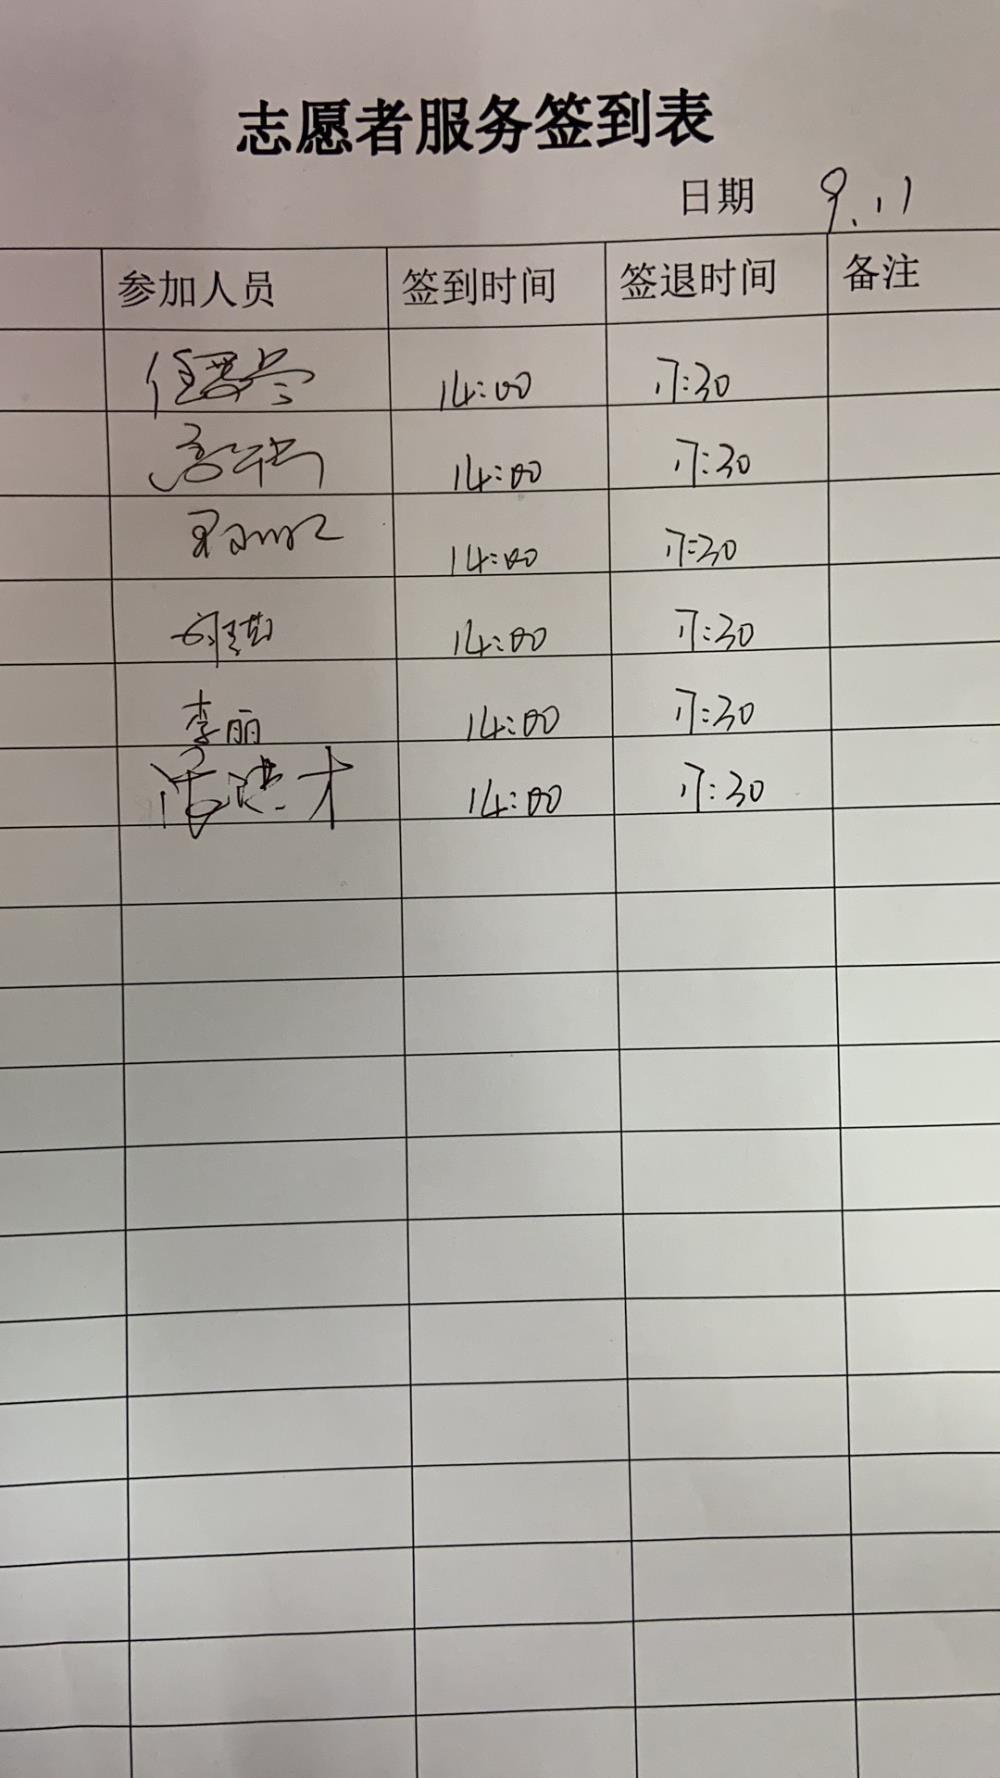 志愿者服务签到表
日期 9.11
参加人员 签到时间 签退时间 备注
14:00 17:30
14:00 17:30
14:00 17:30
14:00 17:30
李丽 14:00 17:30
14:00 17:30